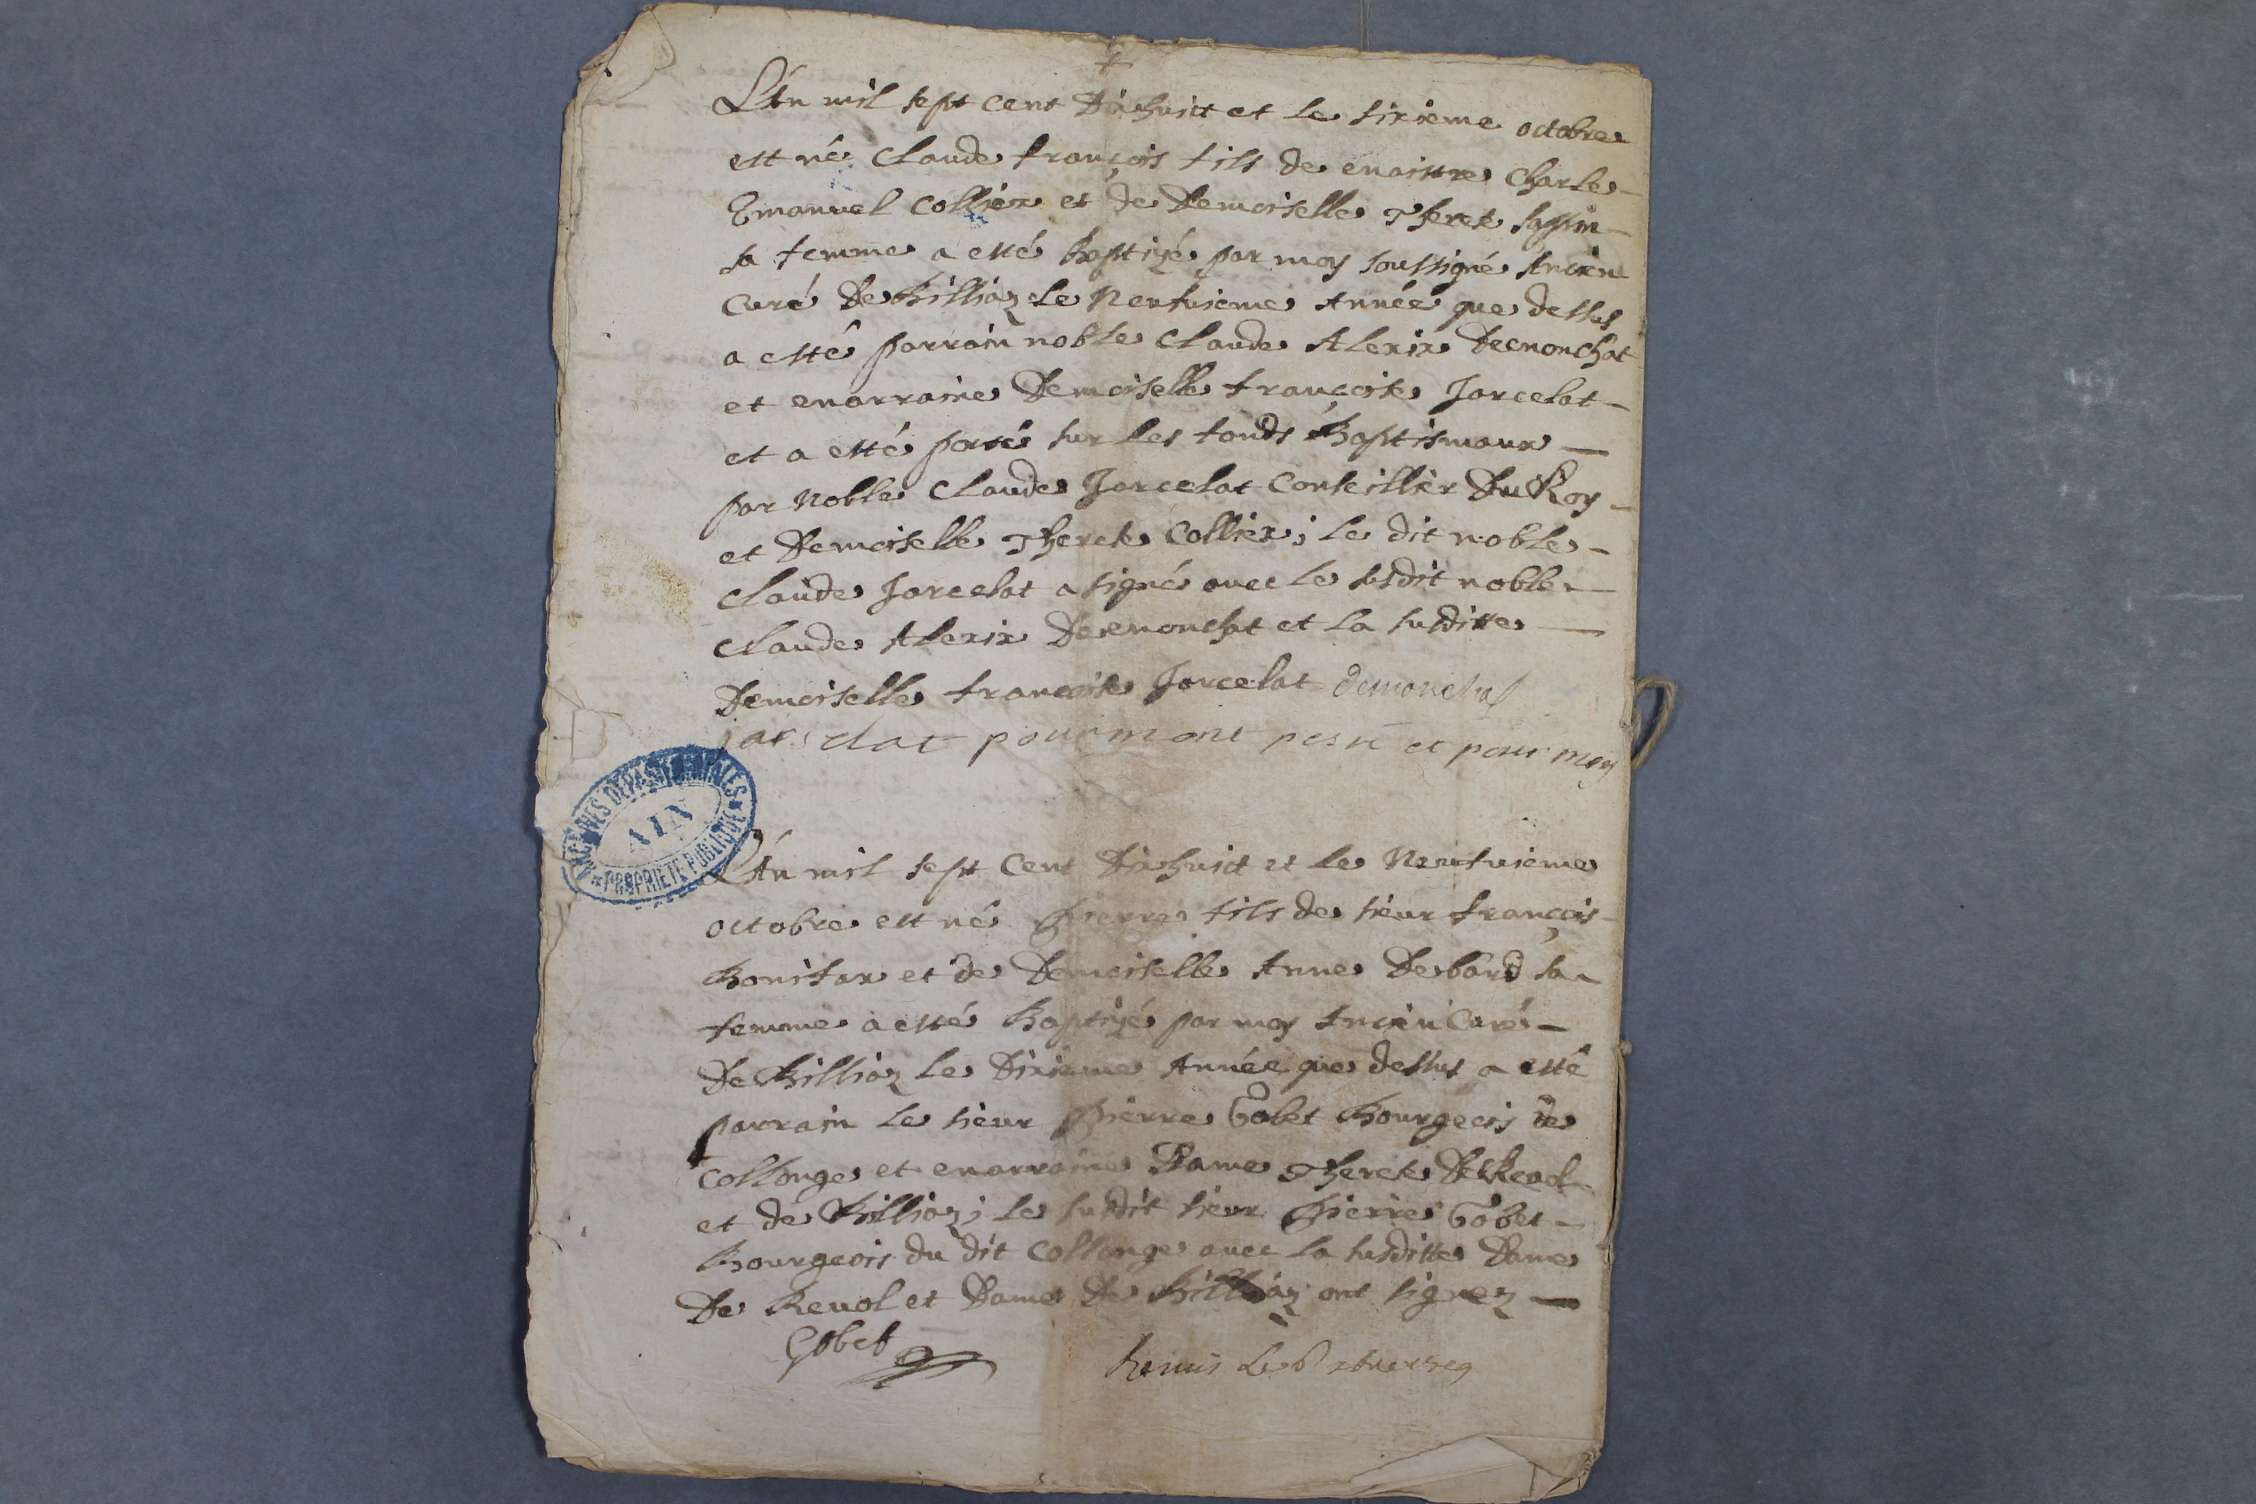 L'An mil sept cent dixhuict et le sixieme octobre
est né Claude françois fils de maistre Charle
Emanuel Collier et de Demoiselle Therese
sa femme a esté baptizé par moy soussigné Ancien
Curé de billiaz le Neufvieme Année que dessus
a esté parrain noble Claude Alexix Demonchat
et marraine Demoiselle françoise Jarcelat
et a esté porté sur les fonds baptismaux
par Noble Claude Jarcelat Conseillier du Roy
et Demoiselle Therese Collier; le dit noble
Claude Jarcelat a signé avec le susdit noble
Claude Alexix Demonchat et la susditte
Demoiselle francoise Jarcelat demonchat
jarselat pour mont et pour moy
ARCHIVES DEPARTEMENTALES
AIN
PROPRIETE PUBLIQUE
L'An mil sept Cent dixhuict et le Neufvieme
octobre est né Pierre fils de sieur françois
bonifax et de Demoiselle Anne Debard sa
femme a esté baptizé par moy Ancien Curé
de billiaz le Dixieme Année que dessus a esté
parrain le sieur Pierre Gobet bourgeois de
Collonge et marraine Dame Therese De Revol
et de billiaz; le susdit sieur Pierre Gobet
bourgeois du dit Collonge avec la susditte Dame
De Revol et Dame de billiaz ont signez
Gobet